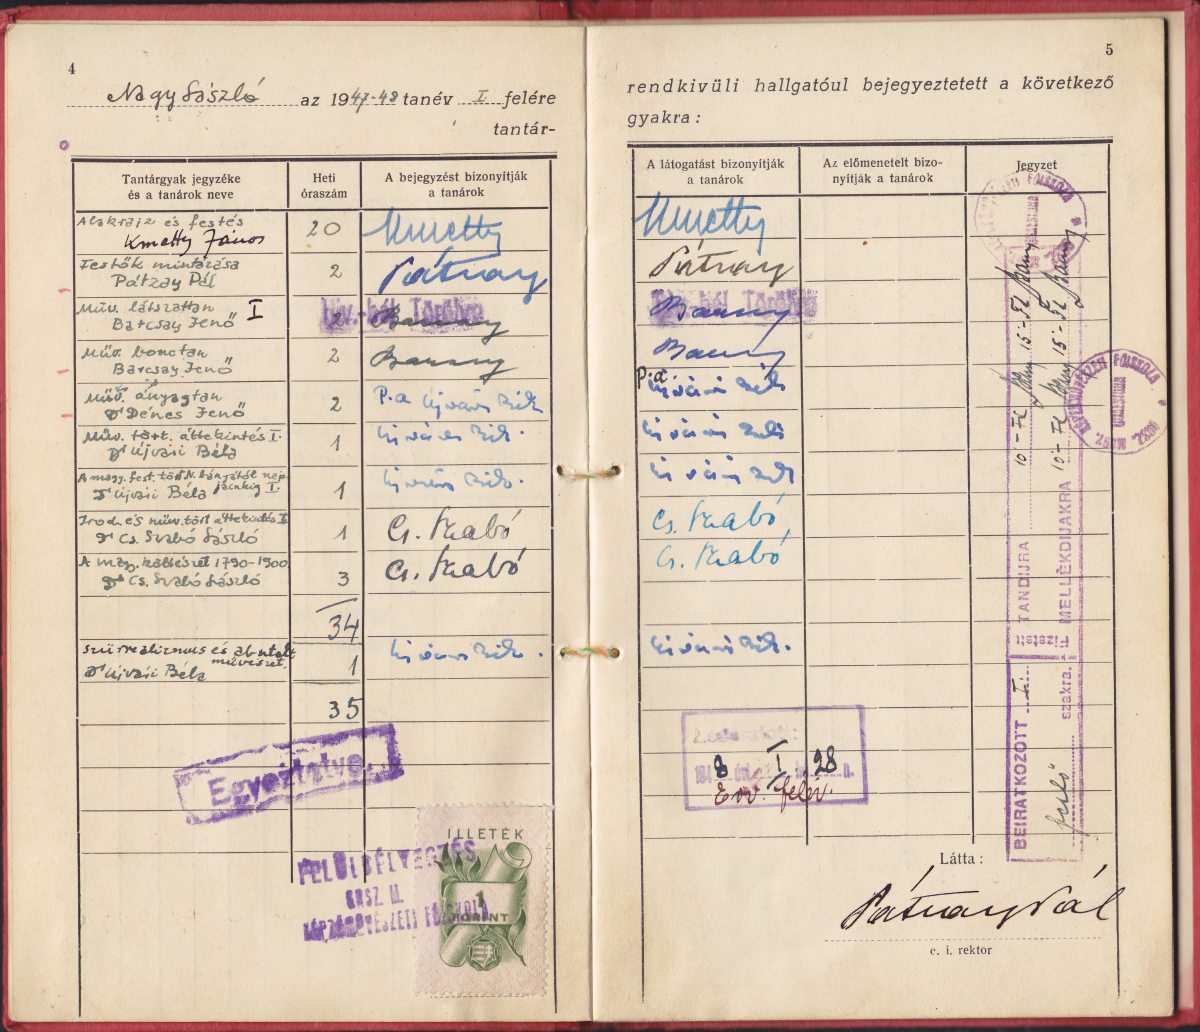 4
Nagy László az 1947-48 tanév I. felére
tantár-
Tantárgyak jegyzéke
és a tanárok neve
Heti
óraszám
A bejegyzést bizonyítják
a tanárok
Alakrajz és festés
Kmetty János
20
Kmetty
Festők mintázása
Pátzay Pál
2
Pátzay
Műv. látszattan I
Barcsay Jenő
2
Barcsay
Műv. bonctan
Barcsay Jenő
2
Barcsay
Műv. anyagtan
Dr Dénes Jenő
2
p.a Újvári Béla
Műv. tört. áttekintés I.
Dr Újvári Béla
1
Újvári Béla.
A magy. fest. tört. N. bányától nap-
jainkig I.
Dr Újvári Béla
1
Újvári Béla.
Irod. és műv. tört. áttekintés I.
Dr Cs. Szabó László
1
Cs. Szabó
A mag. költészet 1790-1900
Dr Cs. Szabó László
3
Cs. Szabó
34
Szürrealizmus és absztrakt
művészet
Dr Újvári Béla
1
Újvári Béla.
35
Egyeztetve.
ILLETÉK
1
FORINT
FELÜLBÉLYEGZÉS
ORSZ. M.
KÉPZŐMŰVÉSZETI FŐISKOLA
5
rendkivüli hallgatóul bejegyeztetett a következő
gyakra:
A látogatást bizonyítják
a tanárok
Az előmenetelt bizo-
nyítják a tanárok
Jegyzet
Kmetty
Pátzay
Barcsay
Barcsay
p.a.
Újvári Béla
Újvári Béla
Újvári Béla
Cs. Szabó,
Cs. Szabó
Újvári Béla.
1948 évi I. 28 n.
Érv. félév.
BEIRATKOZOTT I.
festő szakra.
Fizetett TANDIJRA 10.- Ft
Fizetett MELLÉKDIJAKRA 10.- Ft
Látta:
Pátzay Pál
e. i. rektor